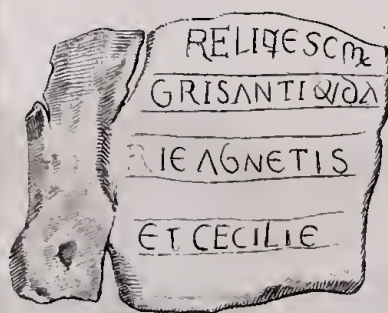 RELIQESCM
GRISANTI DA
RIE AGNETIS
ET CECILIE